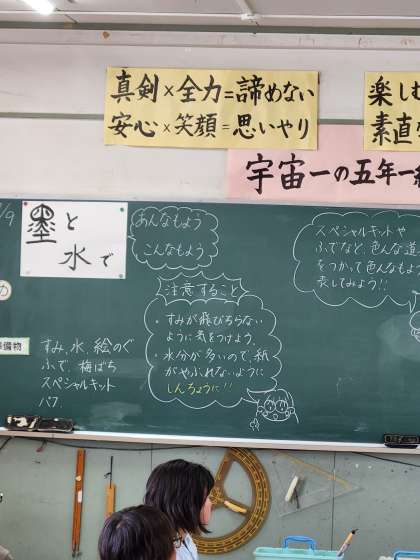 真剣×全力=諦めない
安心×笑顔=思いやり
楽しむ
素直
宇宙一の五年一組
/9
墨と
水で
あんなもよう
こんなもよう
スペシャルキットや
ふでなど、色んな道
をつかって色んなもよ
表してみよう!!
め
注意すること
・すみが飛びちらない
ように気をつけよう。
・水分が多いので、紙
がやぶれないように
しんちょうに!!
準備物
すみ、水、絵のぐ
ふで、梅ばち
スペシャルキット
パフ